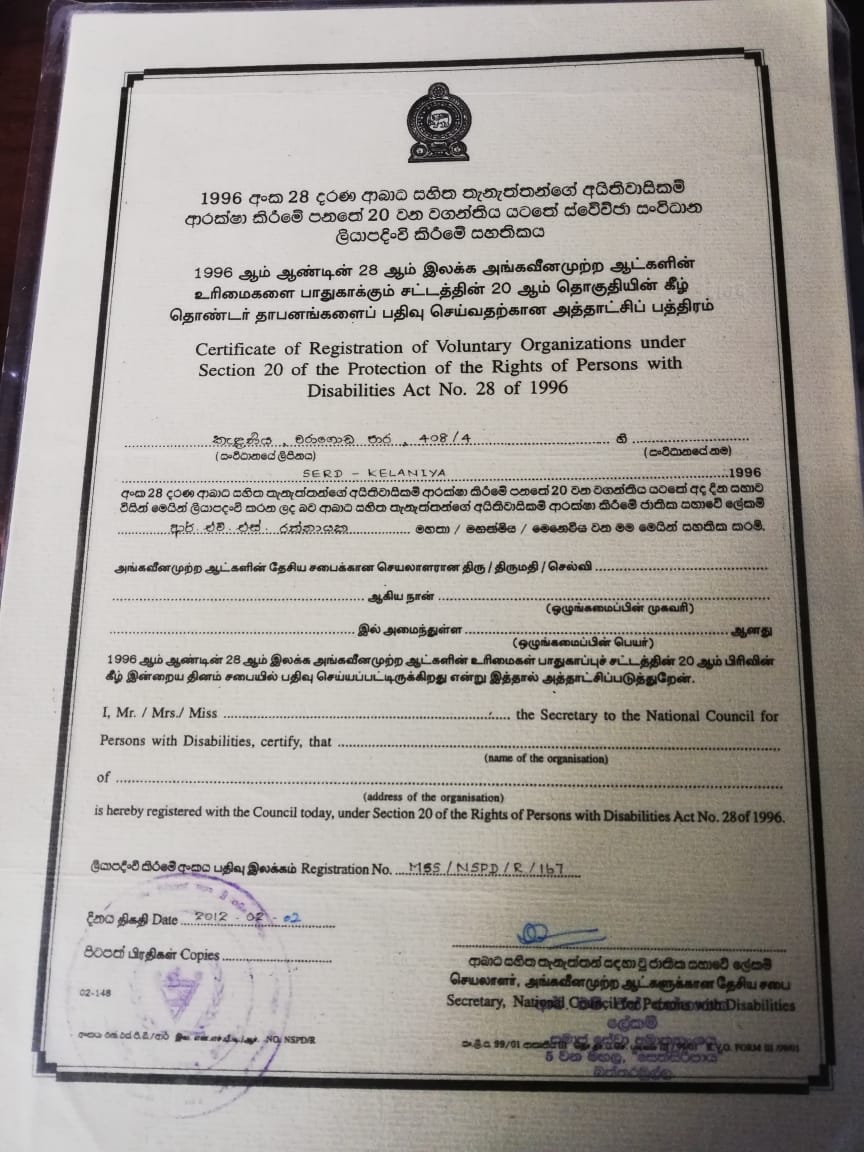 1996 අංක 28 දරණ ආබාධ සහිත තැනැත්තන්ගේ අයිතිවාසිකම්
ආරක්ෂා කිරීමේ පනතේ 20 වන වගන්තිය යටතේ ස්වේච්ඡා සංවිධාන
ලියාපදිංචි කිරීමේ සහතිකය
1996 ஆம் ஆண்டின் 28 ஆம் இலக்க அங்கவீனமுற்ற ஆட்களின்
உரிமைகளை பாதுகாக்கும் சட்டத்தின் 20 ஆம் தொகுதியின் கீழ்
தொண்டர் தாபனங்களைப் பதிவு செய்வதற்கான அத்தாட்சிப் பத்திரம்
Certificate of Registration of Voluntary Organizations under
Section 20 of the Protection of the Rights of Persons with
Disabilities Act No. 28 of 1996
කැළණිය, වරාගොඩ පාර, 408/4 හි
(සංවිධානයේ ලිපිනය) (සංවිධානයේ නම)
SERD - KELANIYA 1996
අංක 28 දරණ ආබාධ සහිත තැනැත්තන්ගේ අයිතිවාසිකම් ආරක්ෂා කිරීමේ පනතේ 20 වන වගන්තිය යටතේ අද දින සභාව
විසින් මෙයින් ලියාපදිංචි කරන ලද බව ආබාධ සහිත තැනැත්තන්ගේ අයිතිවාසිකම් ආරක්ෂා කිරීමේ ජාතික සභාවේ ලේකම්
ආර්. එච්. එස්. රත්නායක මහතා / මහත්මිය / මෙනෙවිය වන මම මෙයින් සහතික කරමි.
அங்கவீனமுற்ற ஆட்களின் தேசிய சபைக்கான செயலாளரான திரு / திருமதி / செல்வி
ஆகிய நான்
(ஒழுங்கமைப்பின் முகவரி)
இல் அமைந்துள்ள ஆனது
(ஒழுங்கமைப்பின் பெயர்)
1996 ஆம் ஆண்டின் 28 ஆம் இலக்க அங்கவீனமுற்ற ஆட்களின் உரிமைகள் பாதுகாப்புச் சட்டத்தின் 20 ஆம் பிரிவின்
கீழ் இன்றைய தினம் சபையில் பதிவு செய்யப்பட்டிருக்கிறது என்று இத்தால் அத்தாட்சிப்படுத்துறேன்.
I, Mr. / Mrs./ Miss the Secretary to the National Council for
Persons with Disabilities, certify, that
(name of the organisation)
of
(address of the organisation)
is hereby registered with the Council today, under Section 20 of the Rights of Persons with Disabilities Act No. 28 of 1996.
ලියාපදිංචි කිරීමේ අංකය பதிவு இலக்கம் Registration No. MSS/NSPD/R/167
දිනය திகதி Date 2012-02-02
පිටපත් பிரதிகள் Copies
ආබාධ සහිත තැනැත්තන් සඳහා වූ ජාතික සභාවේ ලේකම්
செயலாளர், அங்கவீனமுற்ற ஆட்களுக்கான தேசிய சபை
Secretary, National Council for Persons with Disabilities
02-148
NO. NSPD/R
ලේකම්
5 වන මහල, "සෙත්සිරිපාය"
බත්තරමුල්ල